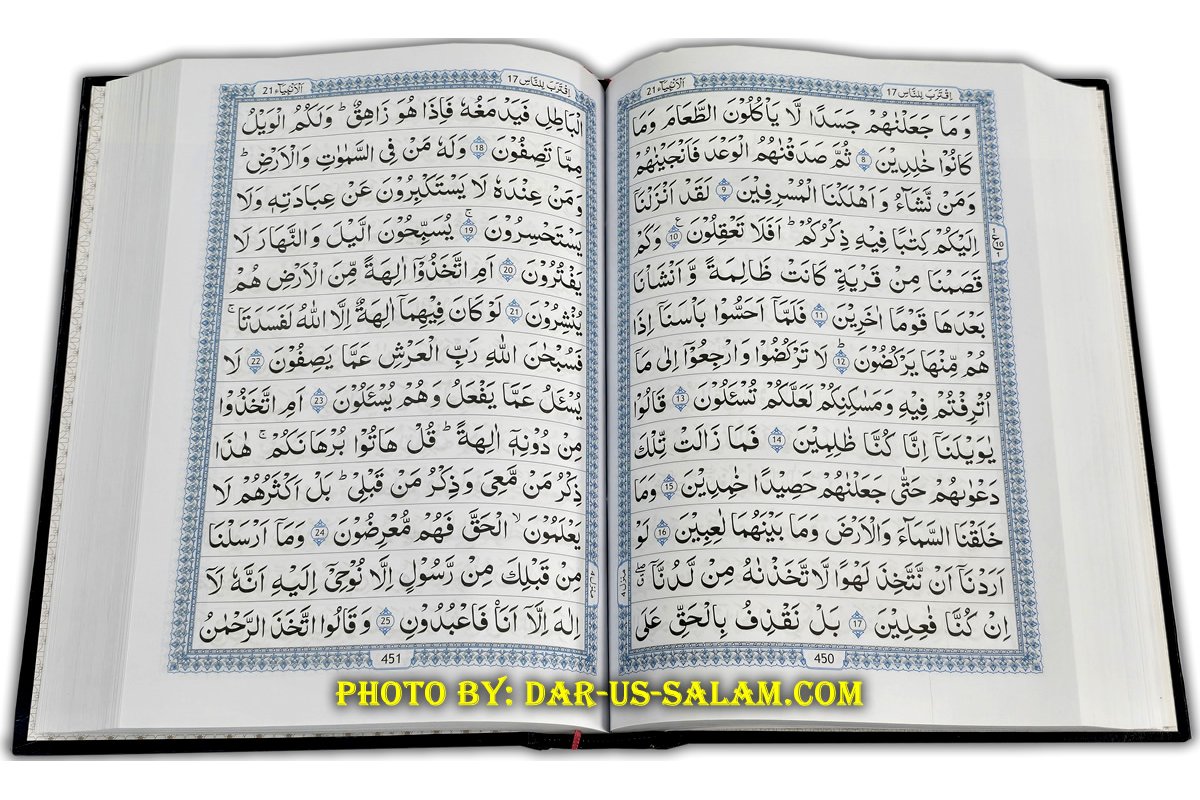 اَلْاَنْۢبِیَآء 21
اِقْتَرَبَ لِلنَّاسِ 17
وَمَا جَعَلْنٰهُمْ جَسَدًا لَّا یَاْكُلُوْنَ الطَّعَامَ وَمَا
كَانُوْا خٰلِدِیْنَ 8 ثُمَّ صَدَقْنٰهُمُ الْوَعْدَ فَاَنْجَیْنٰهُمْ
وَمَنْ نَّشَآءُ وَاَهْلَكْنَا الْمُسْرِفِیْنَ 9 لَقَدْ اَنْزَلْنَاۤ
اِلَیْكُمْ كِتٰبًا فِیْهِ ذِكْرُكُمْ ؕ اَفَلَا تَعْقِلُوْنَ 10 وَكَمْ
قَصَمْنَا مِنْ قَرْیَةٍ كَانَتْ ظَالِمَةً وَّاَنْشَاْنَا
بَعْدَهَا قَوْمًا اٰخَرِیْنَ 11 فَلَمَّاۤ اَحَسُّوْا بَاْسَنَاۤ اِذَا
هُمْ مِّنْهَا یَرْكُضُوْنَ 12 لَا تَرْكُضُوْا وَارْجِعُوْۤا اِلٰی مَاۤ
اُتْرِفْتُمْ فِیْهِ وَمَسٰكِنِكُمْ لَعَلَّكُمْ تُسْـَٔلُوْنَ 13 قَالُوْا
یٰوَیْلَنَاۤ اِنَّا كُنَّا ظٰلِمِیْنَ 14 فَمَا زَالَتْ تِّلْكَ
دَعْوٰىهُمْ حَتّٰی جَعَلْنٰهُمْ حَصِیْدًا خٰمِدِیْنَ 15 وَمَا
خَلَقْنَا السَّمَآءَ وَالْاَرْضَ وَمَا بَیْنَهُمَا لٰعِبِیْنَ 16 لَوْ
اَرَدْنَاۤ اَنْ نَّتَّخِذَ لَهْوًا لَّاتَّخَذْنٰهُ مِنْ لَّدُنَّاۤ ۖۗ
اِنْ كُنَّا فٰعِلِیْنَ 17 بَلْ نَقْذِفُ بِالْحَقِّ عَلَی
450
اَلْاَنْۢبِیَآء 21
اِقْتَرَبَ لِلنَّاسِ 17
الْبَاطِلِ فَیَدْمَغُهٗ فَاِذَا هُوَ زَاهِقٌ ؕ وَلَكُمُ الْوَیْلُ
مِمَّا تَصِفُوْنَ 18 وَلَهٗ مَنْ فِی السَّمٰوٰتِ وَالْاَرْضِ ؕ
وَمَنْ عِنْدَهٗ لَا یَسْتَكْبِرُوْنَ عَنْ عِبَادَتِهٖ وَلَا
یَسْتَحْسِرُوْنَ ۚ 19 یُسَبِّحُوْنَ الَّیْلَ وَالنَّهَارَ لَا
یَفْتُرُوْنَ 20 اَمِ اتَّخَذُوْۤا اٰلِهَةً مِّنَ الْاَرْضِ هُمْ
یُنْشِرُوْنَ 21 لَوْ كَانَ فِیْهِمَاۤ اٰلِهَةٌ اِلَّا اللّٰهُ لَفَسَدَتَا ۚ
فَسُبْحٰنَ اللّٰهِ رَبِّ الْعَرْشِ عَمَّا یَصِفُوْنَ 22 لَا
یُسْـَٔلُ عَمَّا یَفْعَلُ وَهُمْ یُسْـَٔلُوْنَ 23 اَمِ اتَّخَذُوْا
مِنْ دُوْنِهٖۤ اٰلِهَةً ؕ قُلْ هَاتُوْا بُرْهَانَكُمْ ۚ هٰذَا
ذِكْرُ مَنْ مَّعِیَ وَذِكْرُ مَنْ قَبْلِیْ ؕ بَلْ اَكْثَرُهُمْ لَا
یَعْلَمُوْنَ ۙ الْحَقَّ فَهُمْ مُّعْرِضُوْنَ 24 وَمَاۤ اَرْسَلْنَا
مِنْ قَبْلِكَ مِنْ رَّسُوْلٍ اِلَّا نُوْحِیْۤ اِلَیْهِ اَنَّهٗ لَاۤ
اِلٰهَ اِلَّاۤ اَنَا فَاعْبُدُوْنِ 25 وَقَالُوا اتَّخَذَ الرَّحْمٰنُ
451
PHOTO BY: DAR-US-SALAM.COM